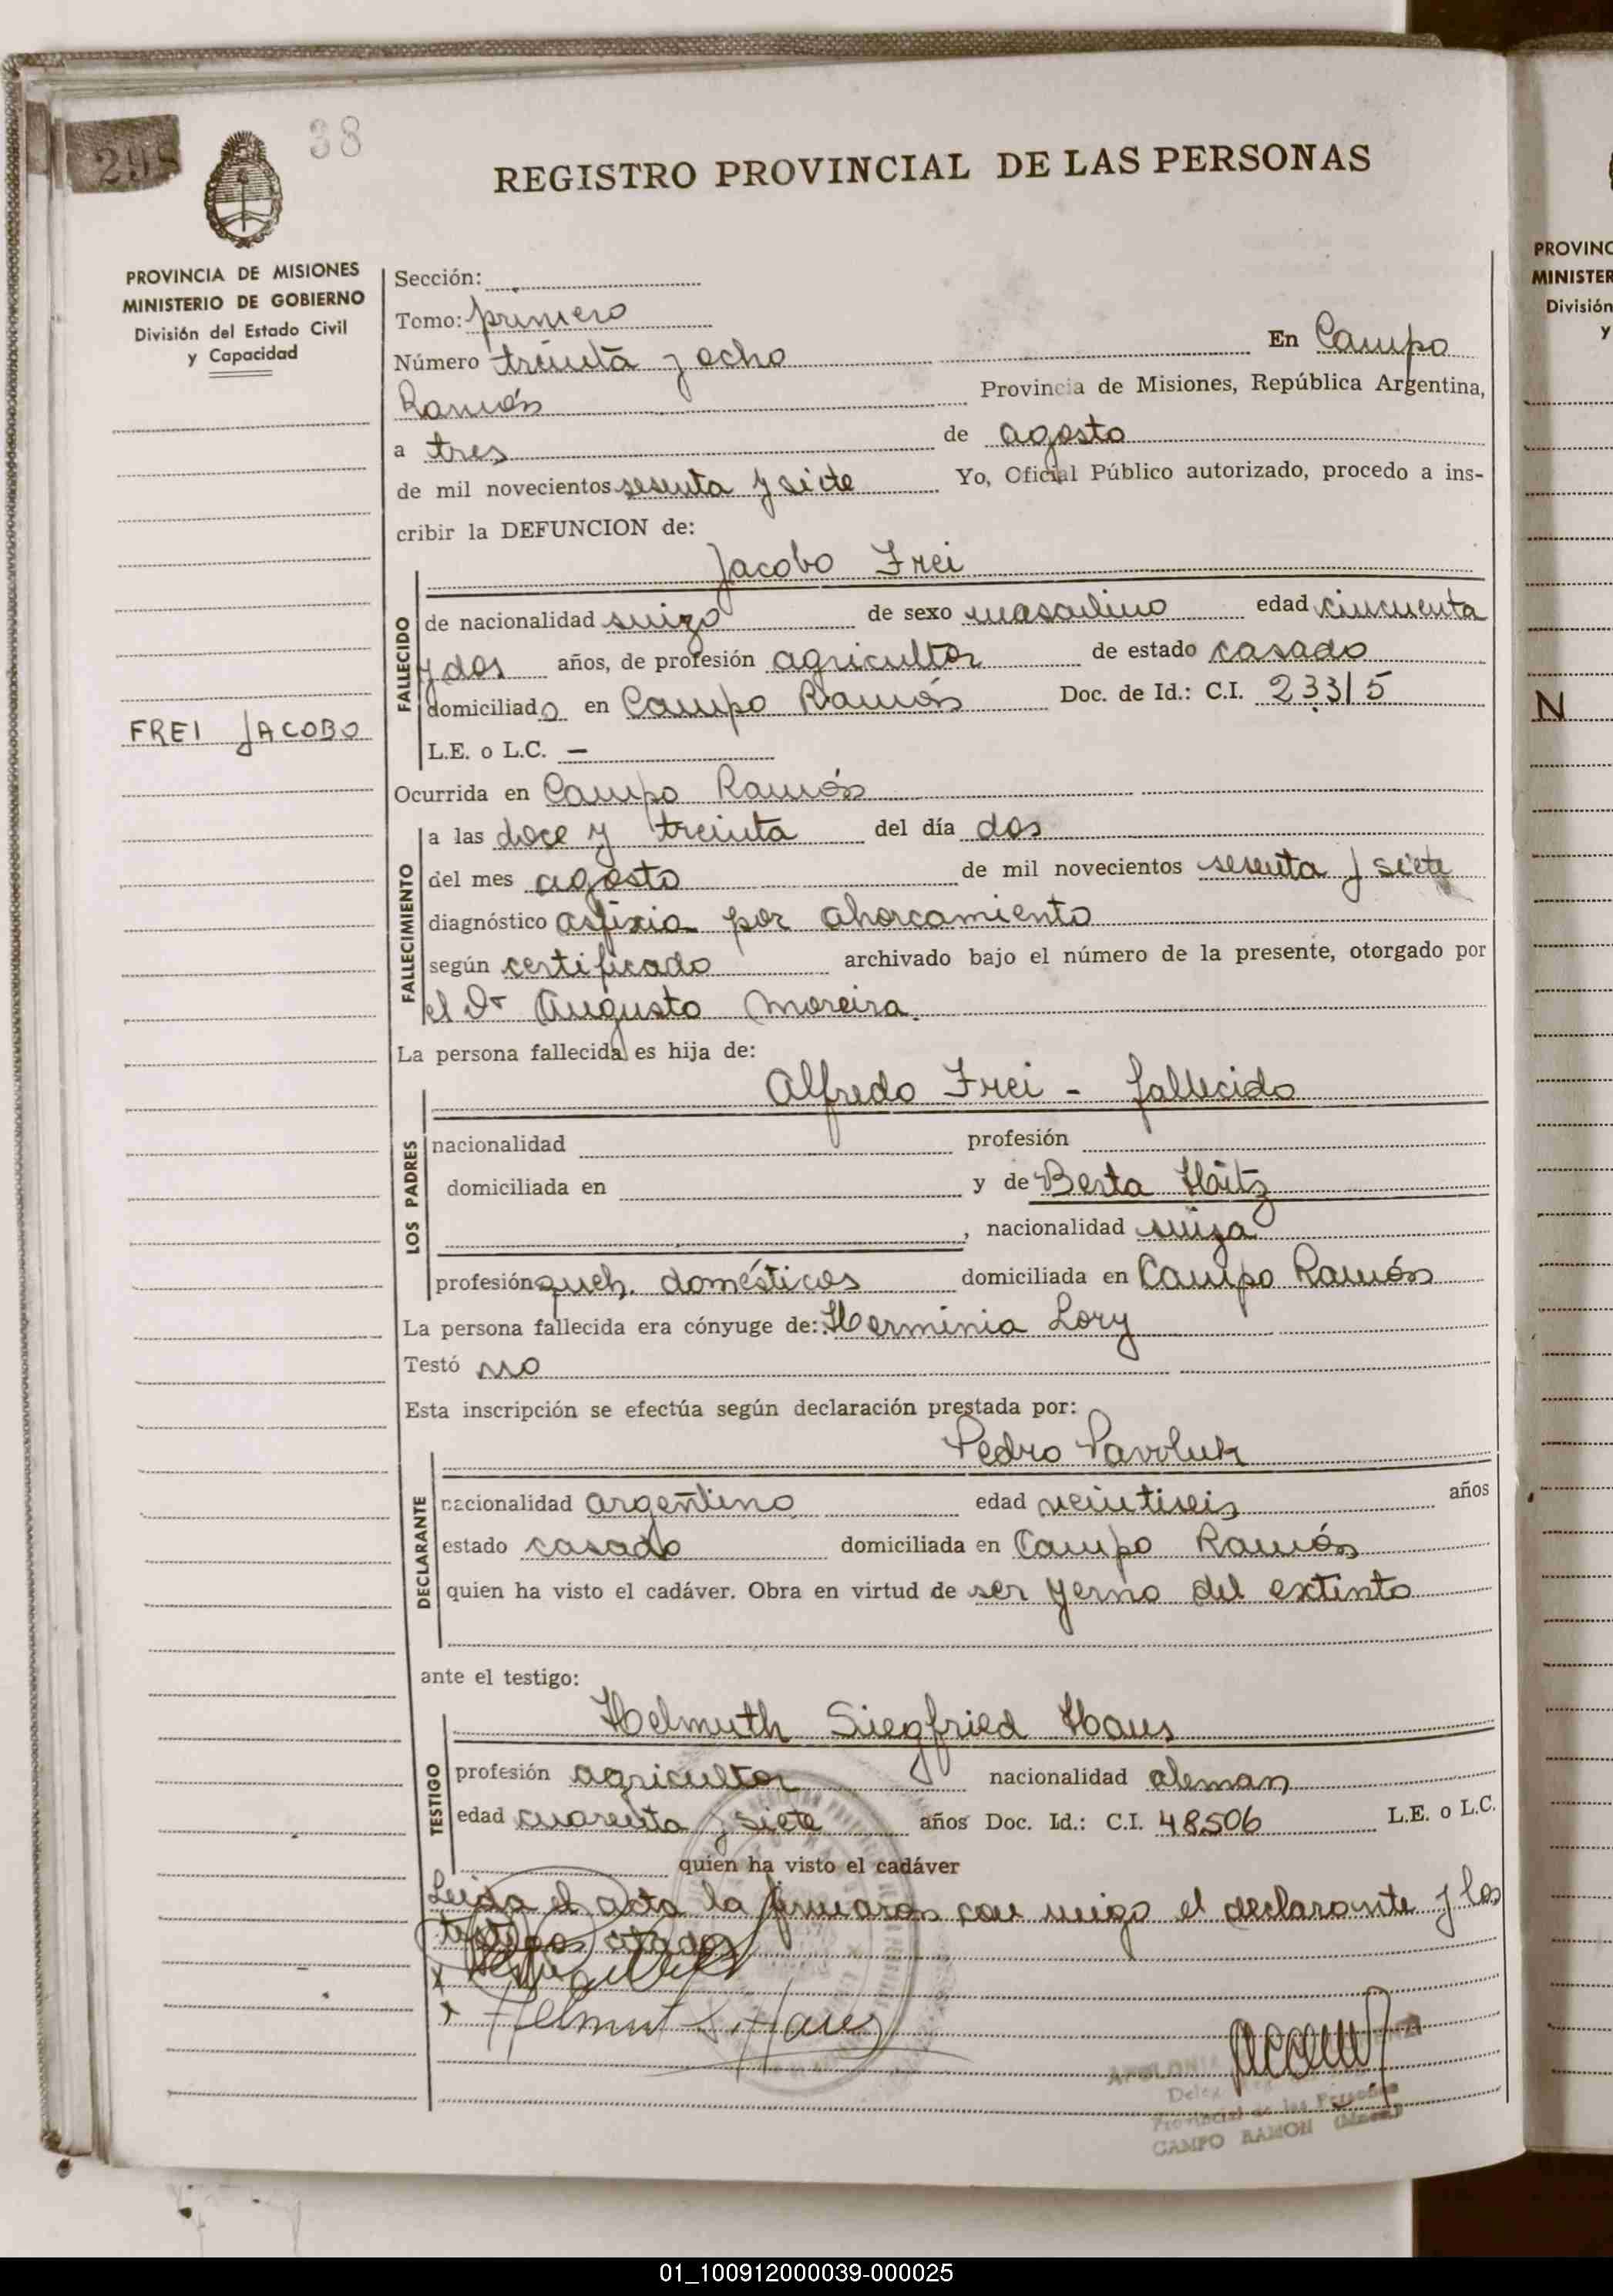 298
38
REGISTRO PROVINCIAL DE LAS PERSONAS
PROVINCIA DE MISIONES
MINISTERIO DE GOBIERNO
División del Estado Civil
y Capacidad
FREI JACOBO
Sección:
Tomo: primero
Número treinta y ocho En Campo
Ramón Provincia de Misiones, República Argentina,
a tres de agosto
de mil novecientos sesenta y siete Yo, Oficial Público autorizado, procedo a ins-
cribir la DEFUNCION de:
Jacobo Frei
FALLECIDO
de nacionalidad suizo de sexo masculino edad cincuenta
y dos años, de profesión agricultor de estado casado
domiciliado en Campo Ramón Doc. de Id.: C.I. 23315
L.E. o L.C. —
Ocurrida en Campo Ramón
FALLECIMIENTO
a las doce y treinta del día dos
del mes agosto de mil novecientos sesenta y siete
diagnóstico asfixia por ahorcamiento
según certificado archivado bajo el número de la presente, otorgado por
el Dr Augusto Moreira.
La persona fallecida es hija de:
Alfredo Frei - fallecido
LOS PADRES
nacionalidad profesión
domiciliada en y de Berta Hätz
, nacionalidad suiza
profesión queh. domésticos domiciliada en Campo Ramón
La persona fallecida era cónyuge de: Herminia Lory
Testó no
Esta inscripción se efectúa según declaración prestada por:
Pedro Pavoluk
DECLARANTE
nacionalidad argentino edad veintiseis años
estado casado domiciliada en Campo Ramón
quien ha visto el cadáver. Obra en virtud de ser yerno del extinto
ante el testigo:
Helmuth Siegfried Haus
TESTIGO
profesión agricultor nacionalidad aleman
edad cuarenta y siete años Doc. Id.: C.I. 48506 L.E. o L.C.
quien ha visto el cadáver
Leida el acta la firmaron con migo el declarante y los
testigos citados
x
x Helmut S. Haus
Provincial de las Personas
CAMPO RAMON (Mnes.)
PROVINC
MINISTER
División
y
N
01_100912000039-000025